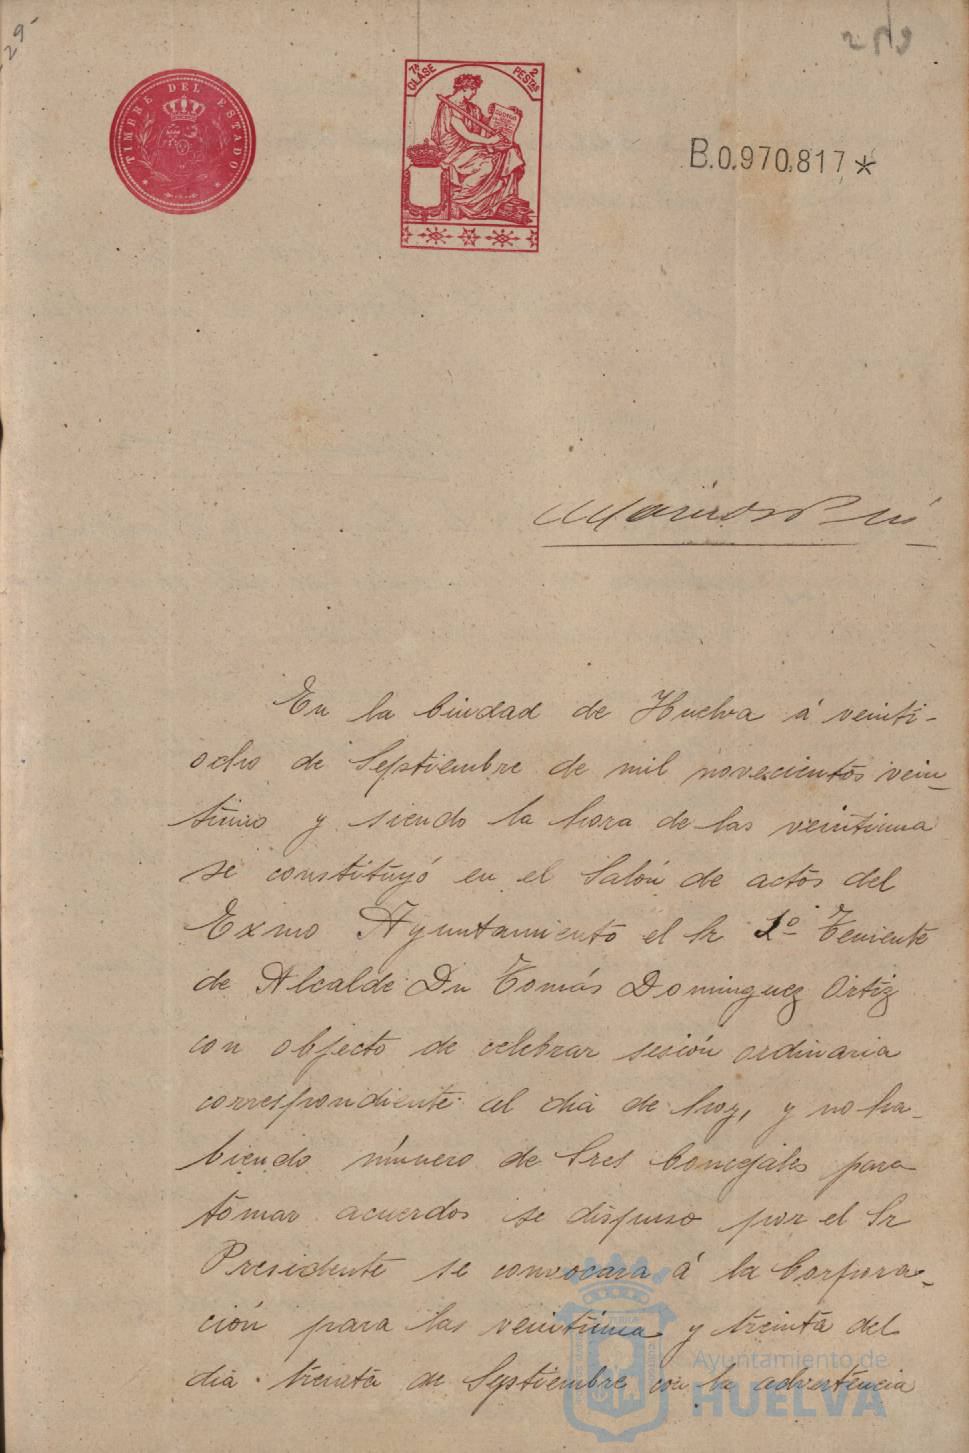 29
TIMBRE DEL ESTADO
7ª CLASE
2 PESTAS
B.0.970.817*
En la Ciudad de Huelva á veinti-
ocho de Septiembre de mil novecientos vein-
tiuno y siendo la hora de las veintiuna
se constituyó en el Salón de actos del
Exmo Ayuntamiento el Sr 1º Teniente
de Alcalde Dn Tomás Dominguez Ortiz
con objecto de celebrar sesión ordinaria
correspondiente al dia de hoy, y no ha-
biendo número de Sres Concejales para
tomar acuerdos se dispuso por el Sr
Presidente se convocara á la Corpora-
ción para las veintiuna y treinta del
dia treinta de Septiembre con la advertencia
Ayuntamiento de
HUELVA